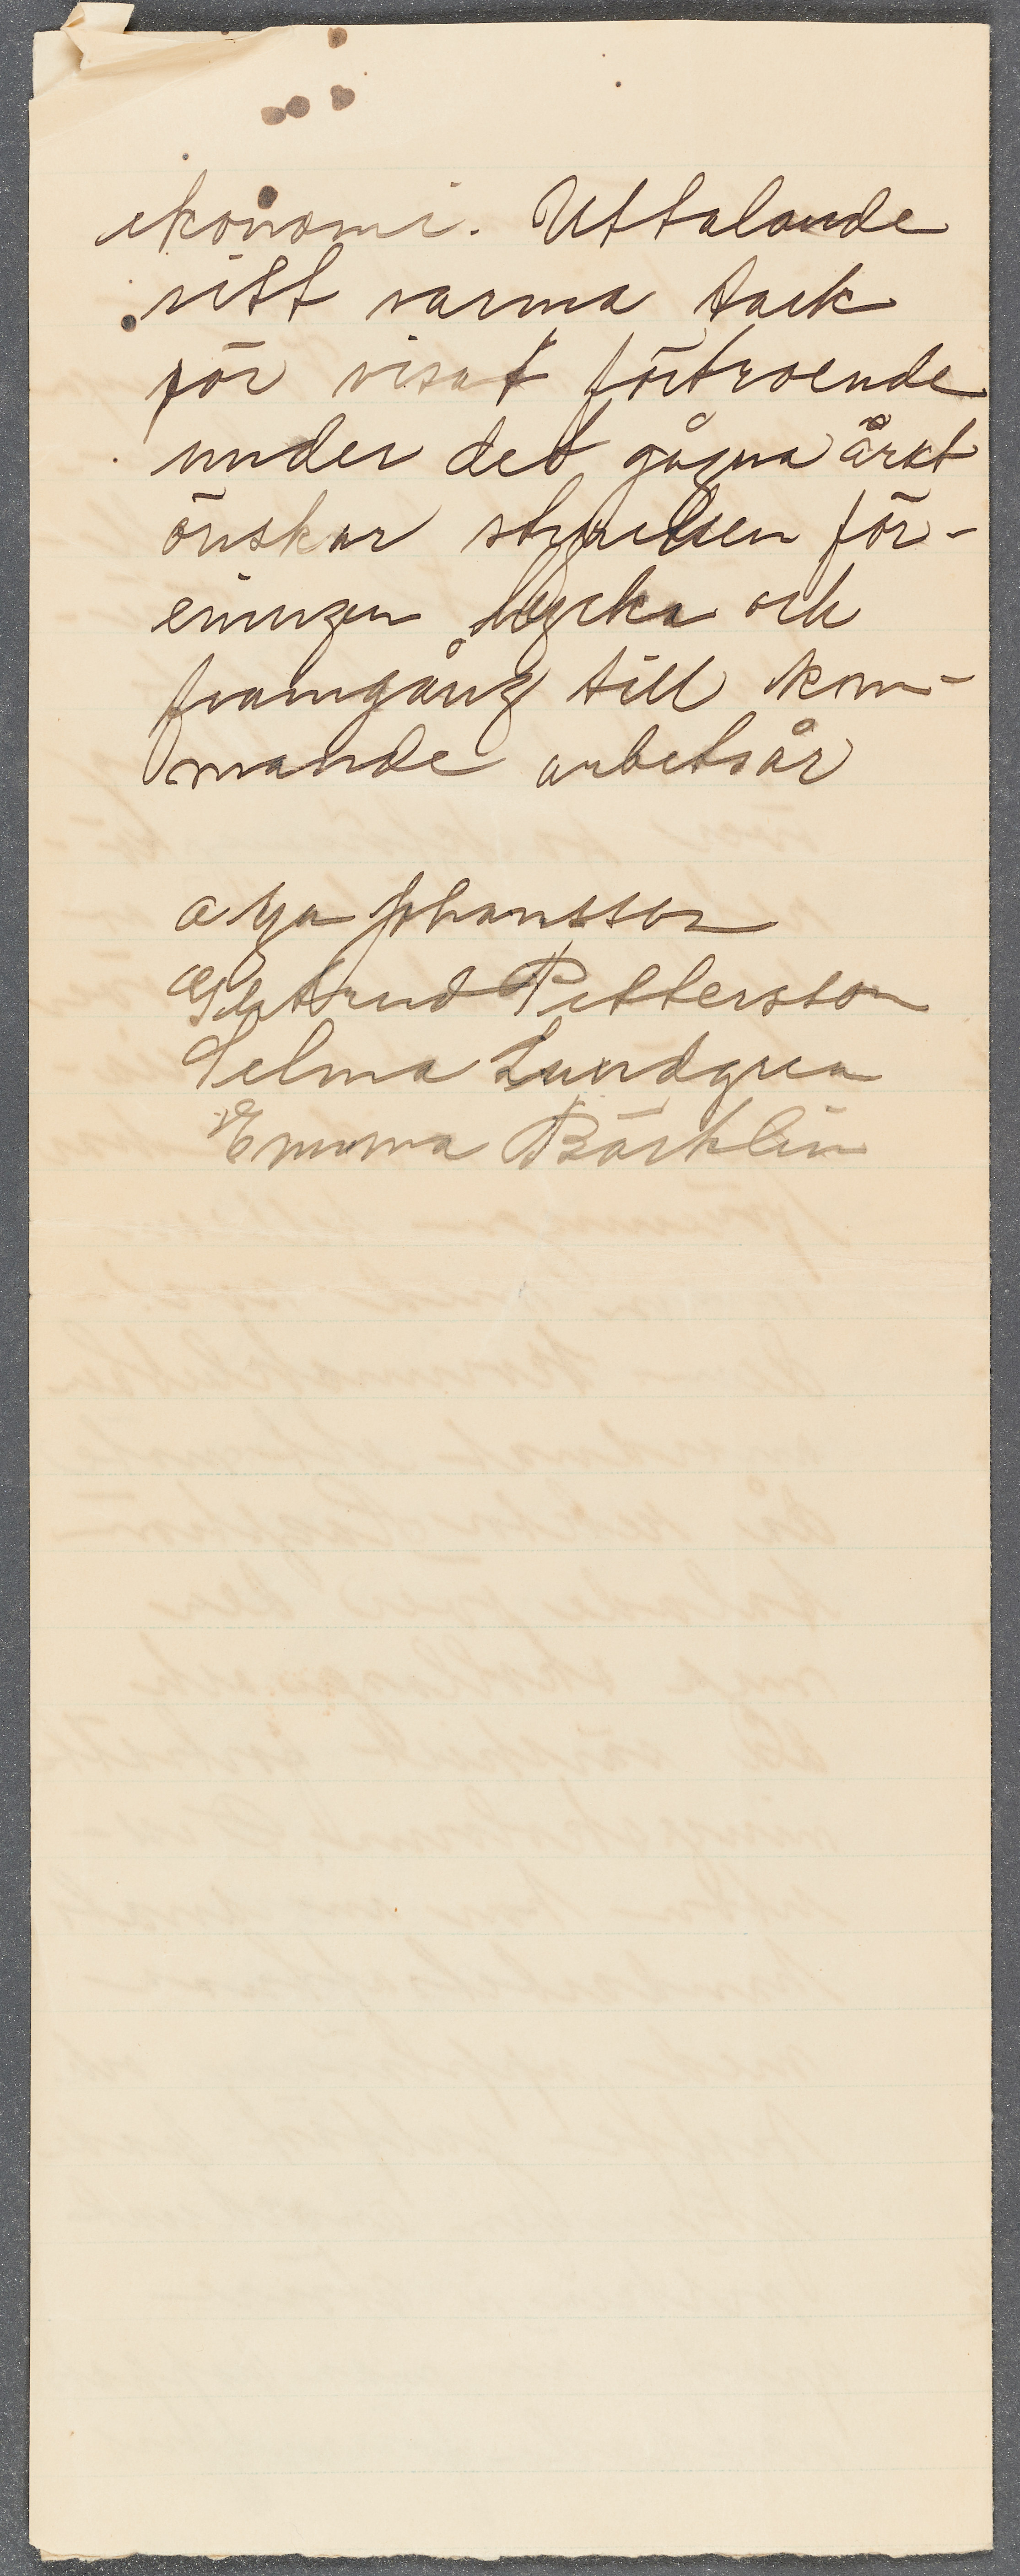 ekonomi. Uttalande
sitt varma tack
för visat förtroende
under det gågna året
önskar styrelsen för-
eningen lycka och
framgång till kom-
mande arbetsår
Olga Johansson
Gertrud Pettersson
Selma Lundgren
Emma Bäcklin